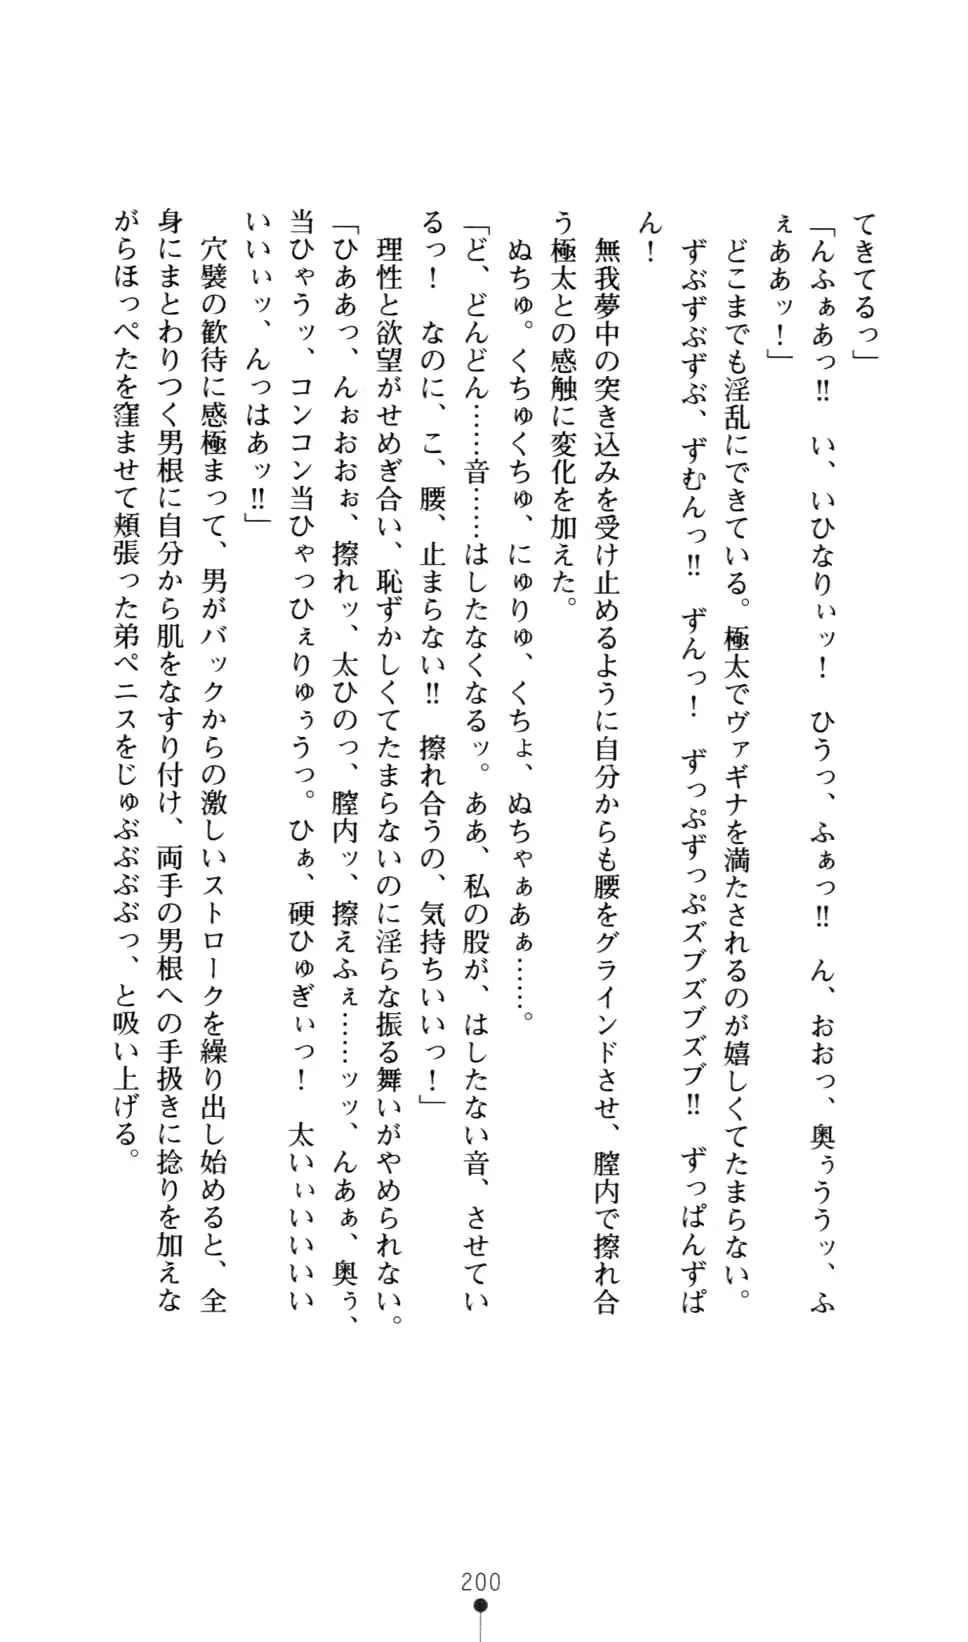 てきてるっ」
「んふぁあっ!!　い、いひなりぃッ！　ひうっ、ふぁっ!!　ん、おおっ、奥ぅううッ、ふ
ぇああッ！」
　どこまでも淫乱にできている。極太でヴァギナを満たされるのが嬉しくてたまらない。
　ずぶずぶずぶ、ずむんっ!!　ずんっ！　ずっぷずっぷズブズブズブ!!　ずっぱんずぱ
ん！
　無我夢中の突き込みを受け止めるように自分からも腰をグラインドさせ、膣内で擦れ合
う極太との感触に変化を加えた。
　ぬちゅ。くちゅくちゅ、にゅりゅ、くちょ、ぬちゃぁあぁ……。
「ど、どんどん……音……はしたなくなるッ。ああ、私の股が、はしたない音、させてい
るっ！　なのに、こ、腰、止まらない!!　擦れ合うの、気持ちいいっ！」
　理性と欲望がせめぎ合い、恥ずかしくてたまらないのに淫らな振る舞いがやめられない。
「ひああっ、んぉおおぉ、擦れッ、太ひのっ、膣内ッ、擦えふぇ……ッッ、んあぁ、奥ぅ、
当ひゃうッ、コンコン当ひゃっひぇりゅぅうっ。ひぁ、硬ひゅぎぃっ！　太いぃいいいい
いいぃッ、んっはあッ!!」
　穴襞の歓待に感極まって、男がバックからの激しいストロークを繰り出し始めると、全
身にまとわりつく男根に自分から肌をなすり付け、両手の男根への手扱きに捻りを加えな
がらほっぺたを窪ませて頬張った弟ペニスをじゅぶぶぶぶっ、と吸い上げる。
200